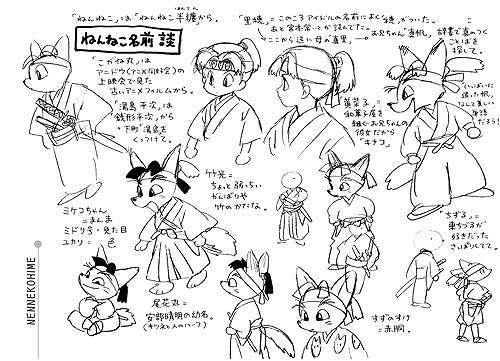 「ねんねこ」は「ねんねこ半纏から。
はんてん
ねんねこ名前談
「こがね丸」は
アニドウ(アニメ同好会)の
上映会で見た
古いアニメフィルムから。
「湯島平次」は
銭形平次から
+下町“湯島を
くっつけて。
「里穂」=このころアイドルの名前によく“穂”がついた。
ここから逆に母の“真里”。
お兄ちゃん“真帆”。
辞書で真のつく
ことばを
探して。
「黄菜子」=
和菓子屋を
継ぐお兄ちゃんの
彼女だから
“キナコ”
ミケコちゃん
=まんま
ミドリ号・見た目
ユカリ= 色
竹光=
ちょっと弱っちい
がんばりや
竹のかたな。
尾花丸=
安部晴明の幼名。
(キツネと人のハーフ)
すずのすけ
=赤胴。
「ちずる」=
東ちづるが
好きだった
さっぱりしてて。
NENNEKOHIME